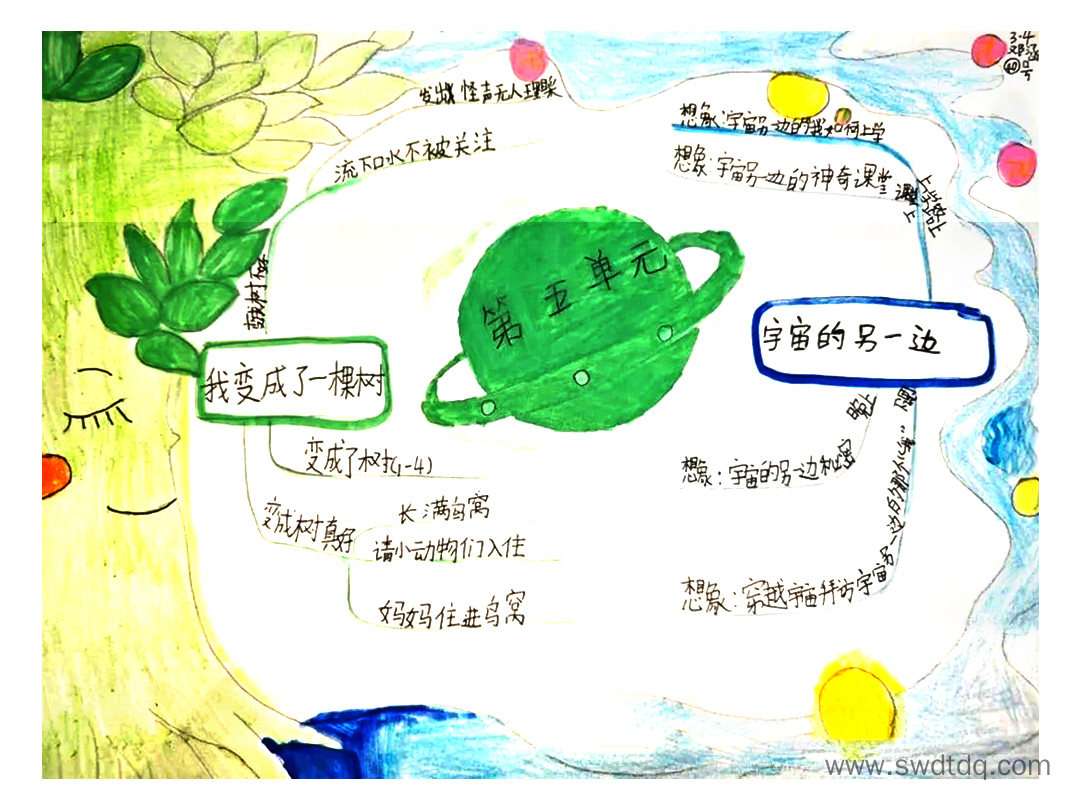 3.4
邓涵
40号
第五单元
我变成了一棵树
流下口水不被关注
变成了树(1-4)
变成树真好
长满鸟窝
请小动物们入住
妈妈住进鸟窝
宇宙的另一边
想象:宇宙另一边的我如何上学
想象:宇宙另一边的神奇课堂
课堂上
上学路上
晚上
想象:宇宙的另一边和
想象:穿越宇宙拜访宇宙另一边的那个"我"
www.swdtdq.com